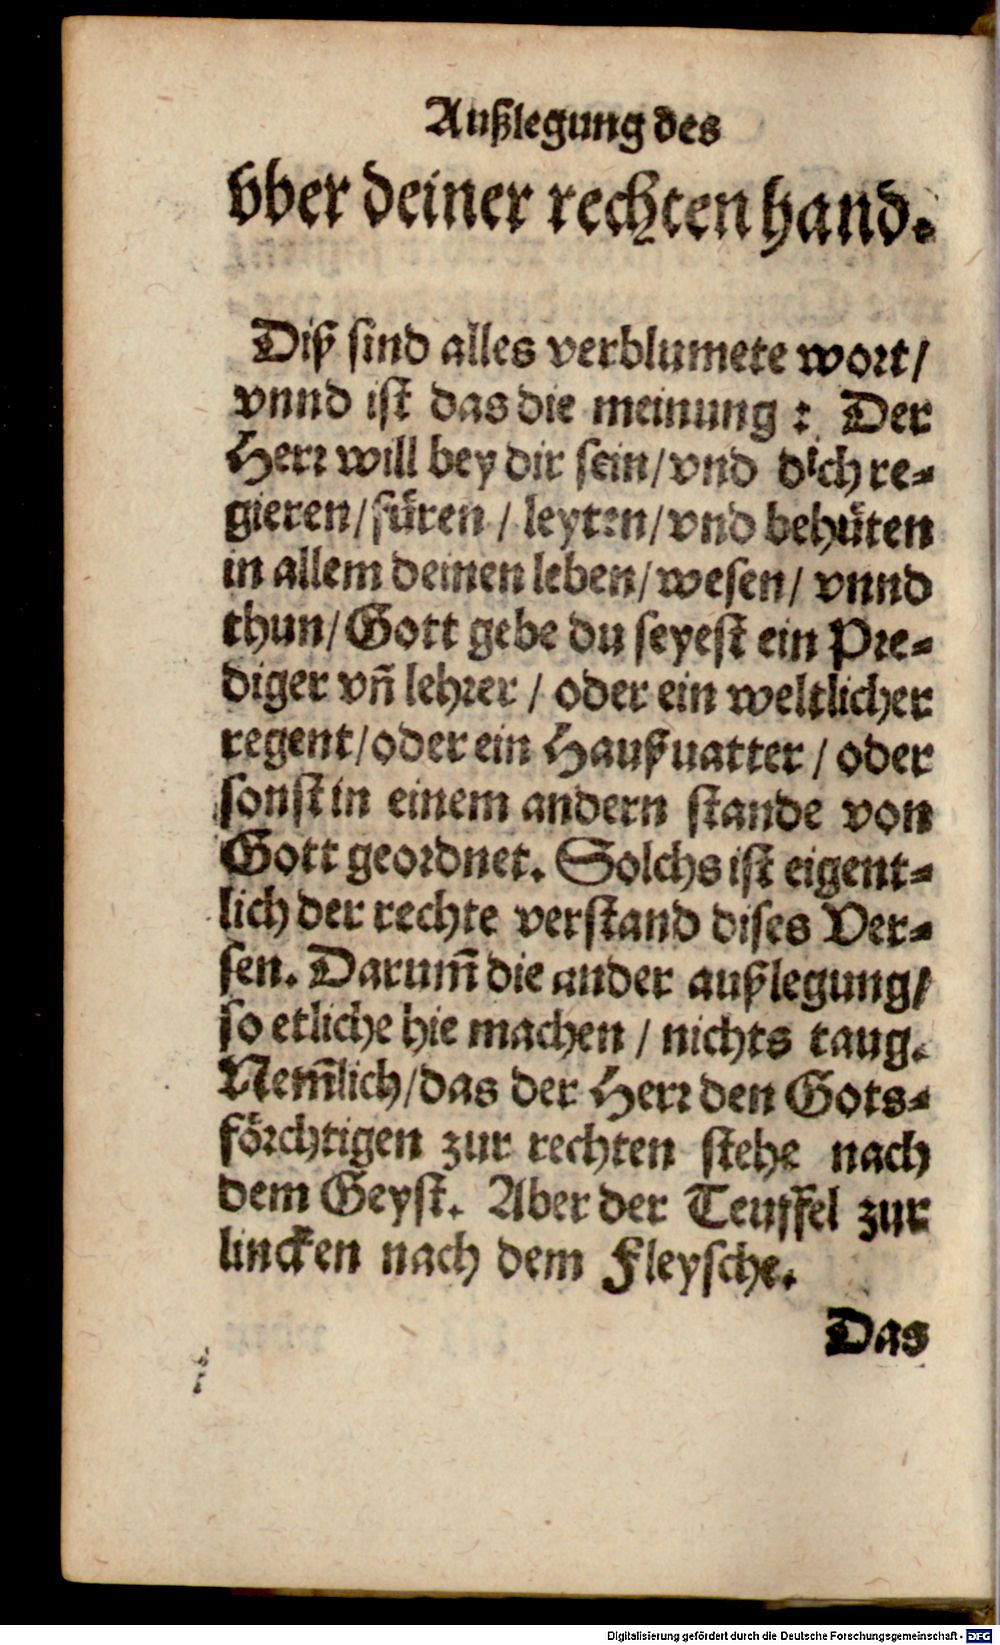 Außlegung des
vber deiner rechten hand.
Diß sind alles verblumete wort/
vnnd ist das die meinung: Der
Herr will bey dir sein/vnd dich re-
gieren/füren/ leyten/vnd behüten
in allem deinen leben/wesen/ vnnd
thun/Gott gebe du seyest ein Pre-
diger vñ lehrer / oder ein weltlicher
regent/oder ein Haußuatter / oder
sonst in einem andern stande von
Gott geordnet. Solchs ist eigent-
lich der rechte verstand dises Ver-
sen. Darum̃ die ander außlegung/
so etliche hie machen / nichts taug.
Nem̃lich/das der Herr den Gots-
förchtigen zur rechten stehe nach
dem Geyst. Aber der Teuffel zur
lincken nach dem Fleysche.
Das
Digitalisierung gefördert durch die Deutsche Forschungsgemeinschaft - DFG